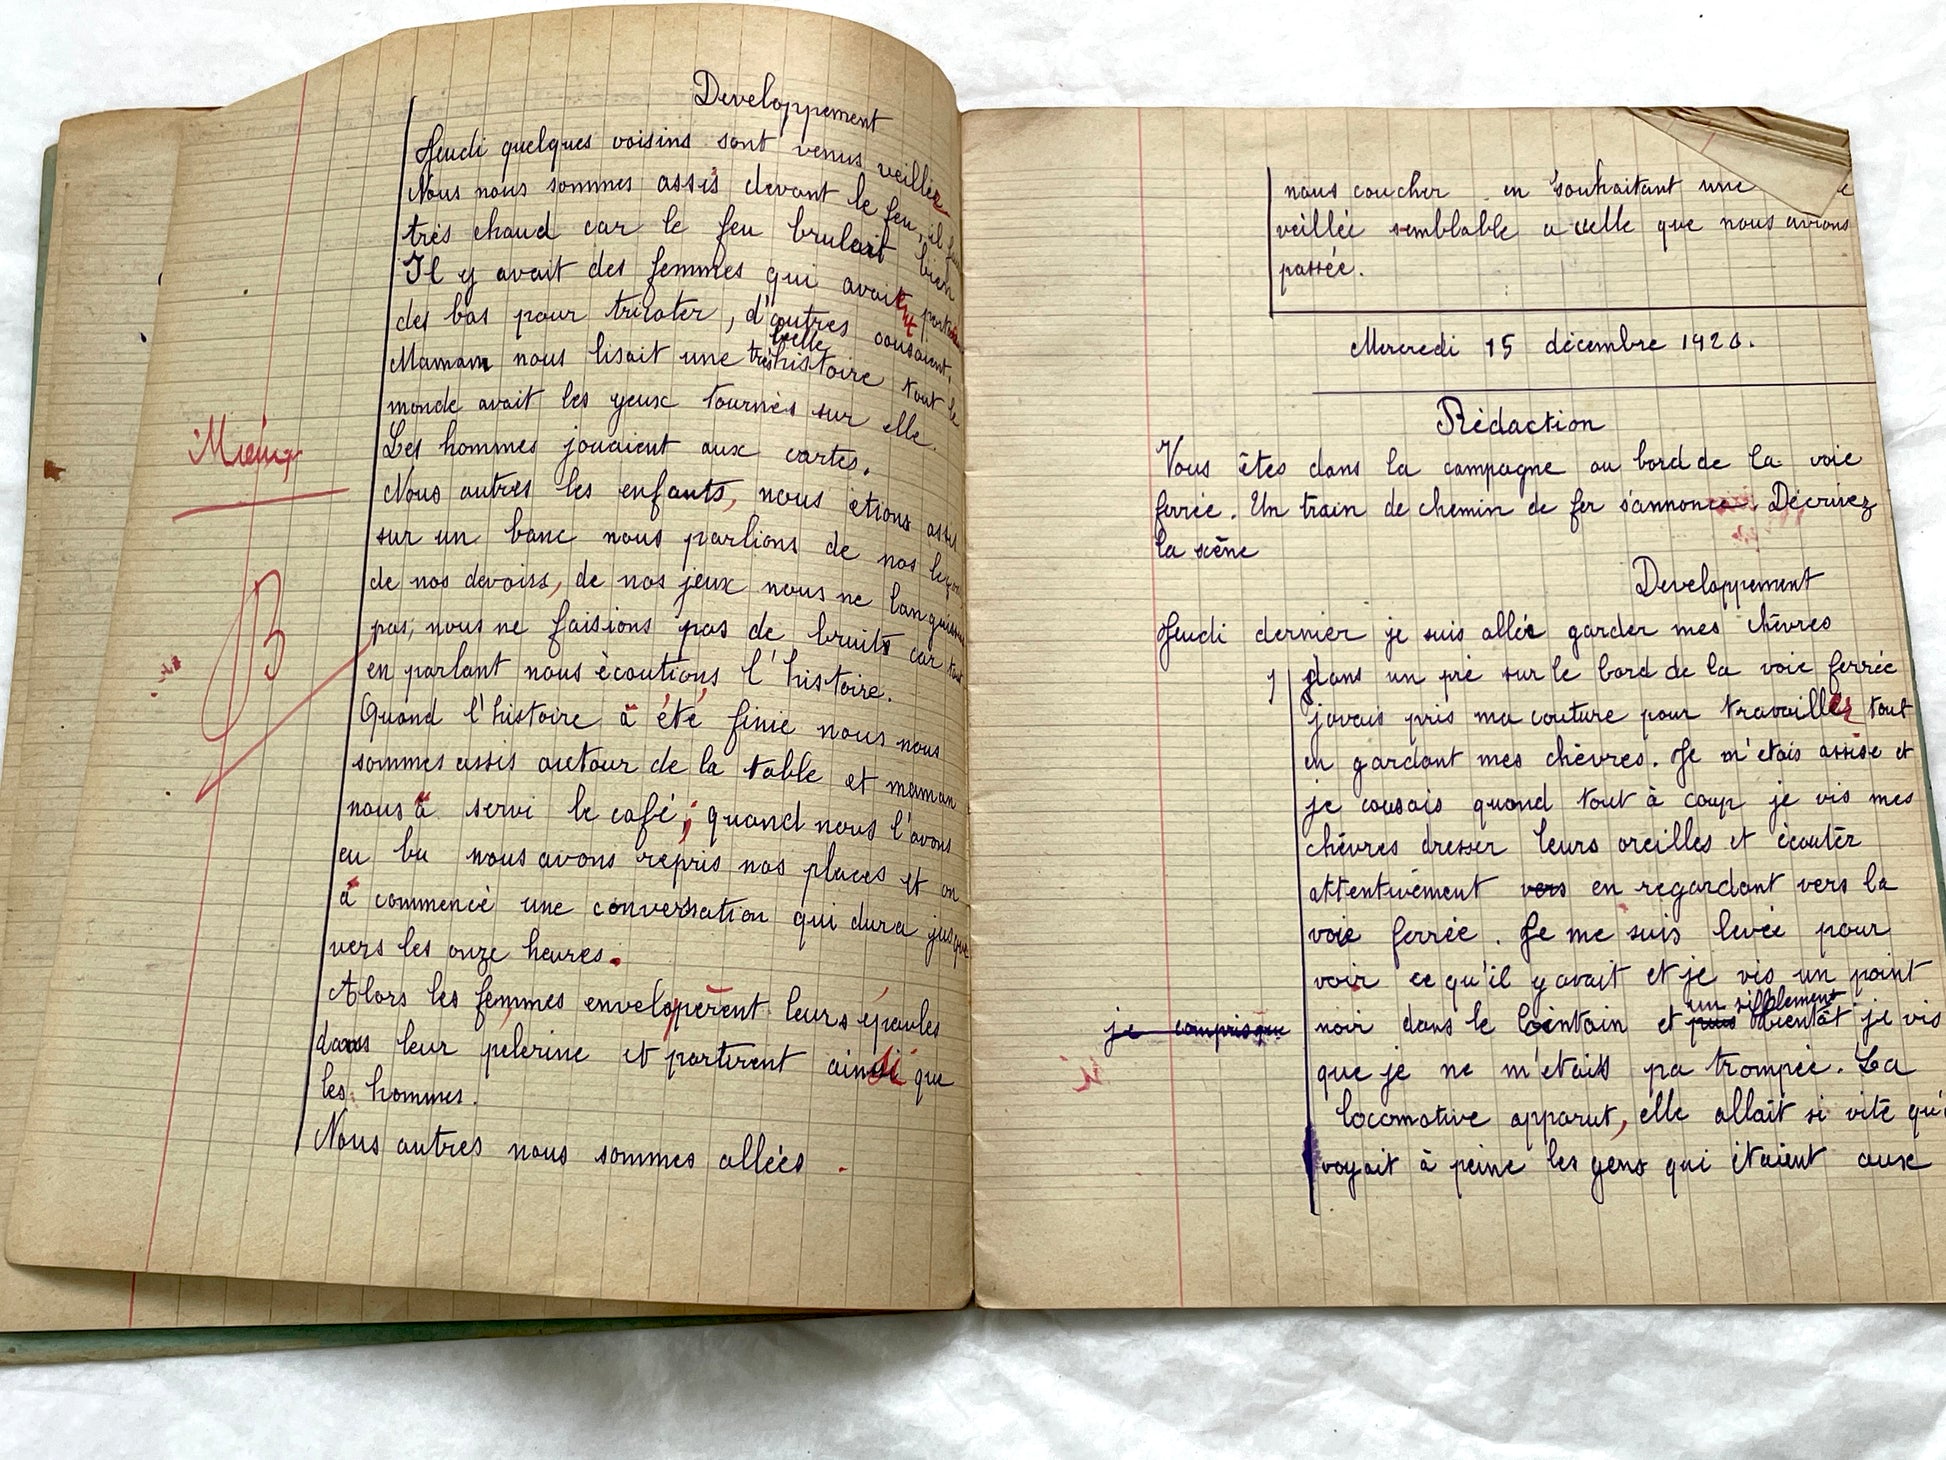 Developpement
Jeudi quelques voisins sont venus veiller
Nous nous sommes assis devant le feu, il
très chaud car le feu brulait bien
Il y avait des femmes qui avaient
des bas pour tricoter, d'autres cousaient.
belle
Maman nous lisait une très histoire tout le
monde avait les yeux tournés sur elle.
Les hommes jouaient aux cartes.
Nous autres les enfants, nous étions assis
sur un banc nous parlions de nos leçons
de nos devoirs, de nos jeux nous ne
pas, nous ne faisions pas de bruits car tout
en parlant nous écoutions l'histoire.
Quand l'histoire à été finie nous nous
sommes assis autour de la table et maman
nous à servi le café; quand nous l'avons
eu bu nous avons repris nos places et on
à commencé une conversation qui dura jusque
vers les onze heures.
Alors les femmes enveloperent leurs épaules
dans leur pelerine et partirent ainsi que
les hommes.
Nous autres nous sommes allées
Mieux
B
nous coucher en souhaitant une
veillée semblable a celle que nous avions
passée.
Mercredi 15 décembre 1920.
Rédaction
Vous êtes dans la campagne au bord de la voie
ferrée. Un train de chemin de fer s'annonce. Décrivez
la scène
Developpement
Jeudi dernier je suis allée garder mes chèvres
dans un pré sur le bord de la voie ferrée
javais pris ma couture pour travailler tout
en gardant mes chèvres. Je m'etais assise et
je cousais quand tout à coup je vis mes
chèvres dresser leurs oreilles et écouter
attentivement vers en regardant vers la
voie ferrée. Je me suis levée pour
voir ce qu'il y avait et je vis un point
un sifflement
je compris que noir dans le lointain et puis bientôt je vis
que je ne m'etais pa trompée. La
locomotive apparut, elle allait si vite qu'
voyait à peine les gens qui étaient aux